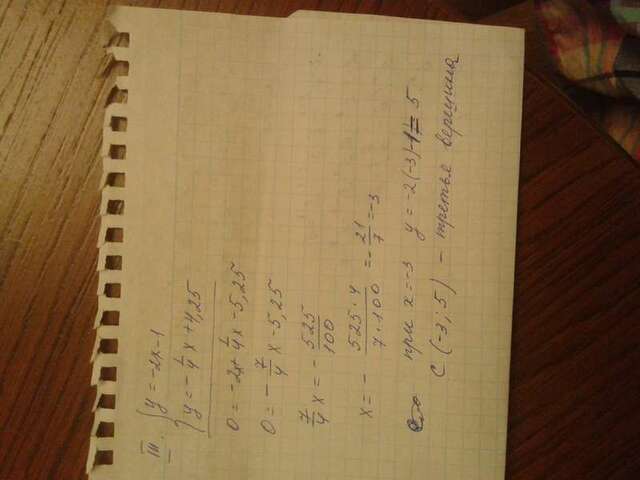 III. { y = -2x-1
{ y = -1/4 x + 4,25
0 = -2x + 1/4 x - 5,25
0 = -7/4 x - 5,25
7/4 x = - 525/100
x = - 525·4/7·100 = - 21/7 = -3
при x = -3 y = -2(-3)-1 = 5
C (-3; 5) - третья вершина